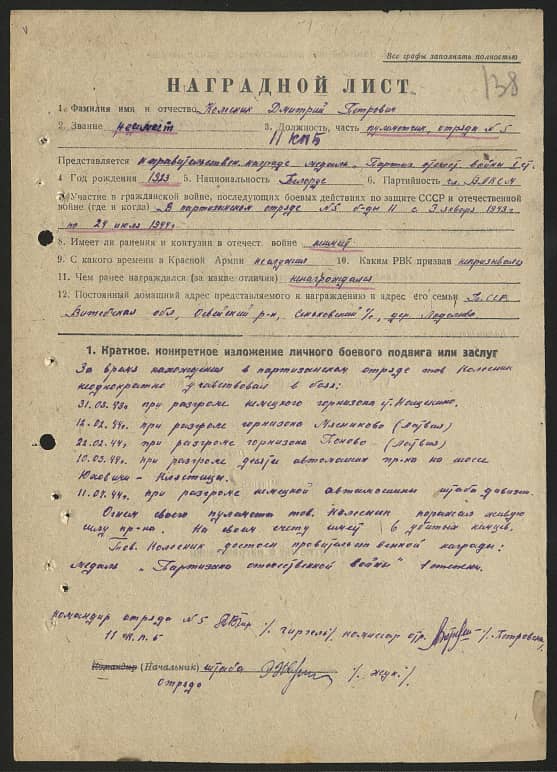 Все графы заполнять полностью
138
НАГРАДНОЙ ЛИСТ
1. Фамилия имя и отчество Колесник Дмитрий Петрович
2. Звание 3. Должность, часть пулеметчик отряда № 5
11 КПБ
Представляется к правительствен. награде медаль "Партиз. отечест. войны I ст.
4 Год рождения 1923 5. Национальность Белорус 6. Партийность чл. ВЛКСМ
7. Участие в гражданской войне, последующих боевых действиях по защите СССР и отечественной
войне (где и когда) В партизанском отряде № 5 б-ды 11 с 3 января 1943 г.
по 24 июля 1944 г.
8. Имеет ли ранения и контузии в отечест. войне неимеет
9. С какого времени в Красной Армии 10. Каким РВК призван непризывался
11. Чем ранее награждался (за какие отличия) ненаграждался
12. Постоянный домашний адрес представляемого к награждению и адрес его семьи БССР
Витебская обл, Освейский р-н, с/с, дер.
1. Краткое, конкретное изложение личного боевого подвига или заслуг
За время нахождения в партизанском отряде тов Колесник
неоднократно участвовал в боях:
при разгроме немецкого гарнизона
12.02.44г. при разгроме гарнизона Мясниково (Латвия)
22.02.44г. при разгроме гарнизона (Латвия)
10.03.44г. при разгроме десяти автомашин пр-ка на шоссе
Юховичи - Клястицы.
при разгроме немецкой автомашины штаба дивиз.
Огнем своего пулемета тов. Колесник поражал живую
силу пр-ка. На своем счету имеет 6 убитых немцев.
Тов. Колесник достоен правительственной награды:
медаль "Партизана отечественной войны" I степени.
командир отряда № 5 комиссар отр.
11 к.п.б
Командир (Начальник) штаба
отряда